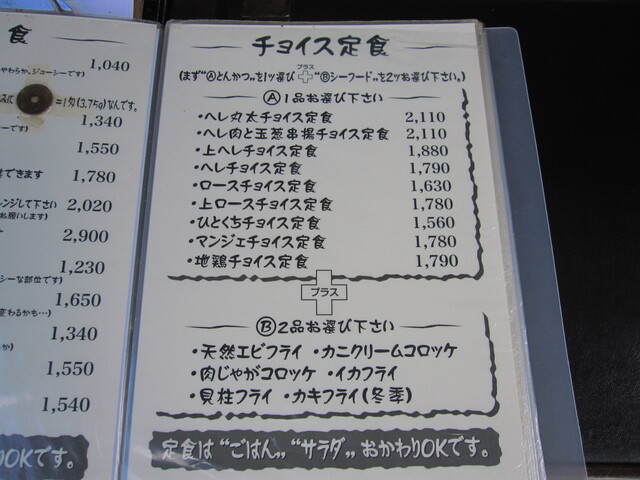 食
やわらか、ジューシーです) 1,040
=1匁(3.75g)なんです。
1,340
1,550
できます 1,780
レンジして下さい 2,020
お願いします)
2,900
1,230
シーな部位です)
1,650
変わるかも…)
1,340
1,550
1,540
OKです。
チョイス定食
(まず“Ⓐとんかつ„を1ツ選び プラス “Ⓑシーフード„を2ツお選び下さい。)
Ⓐ1品お選び下さい
・ヘレ丸太チョイス定食 2,110
・ヘレ肉と玉葱串揚チョイス定食 2,110
・上ヘレチョイス定食 1,880
・ヘレチョイス定食 1,790
・ロースチョイス定食 1,630
・上ロースチョイス定食 1,780
・ひとくちチョイス定食 1,560
・マンジェチョイス定食 1,780
・地鶏チョイス定食 1,790
プラス
Ⓑ2品お選び下さい
・天然エビフライ ・カニクリームコロッケ
・肉じゃがコロッケ ・イカフライ
・貝柱フライ ・カキフライ(冬季)
定食は“ごはん„“サラダ„おかわりOKです。